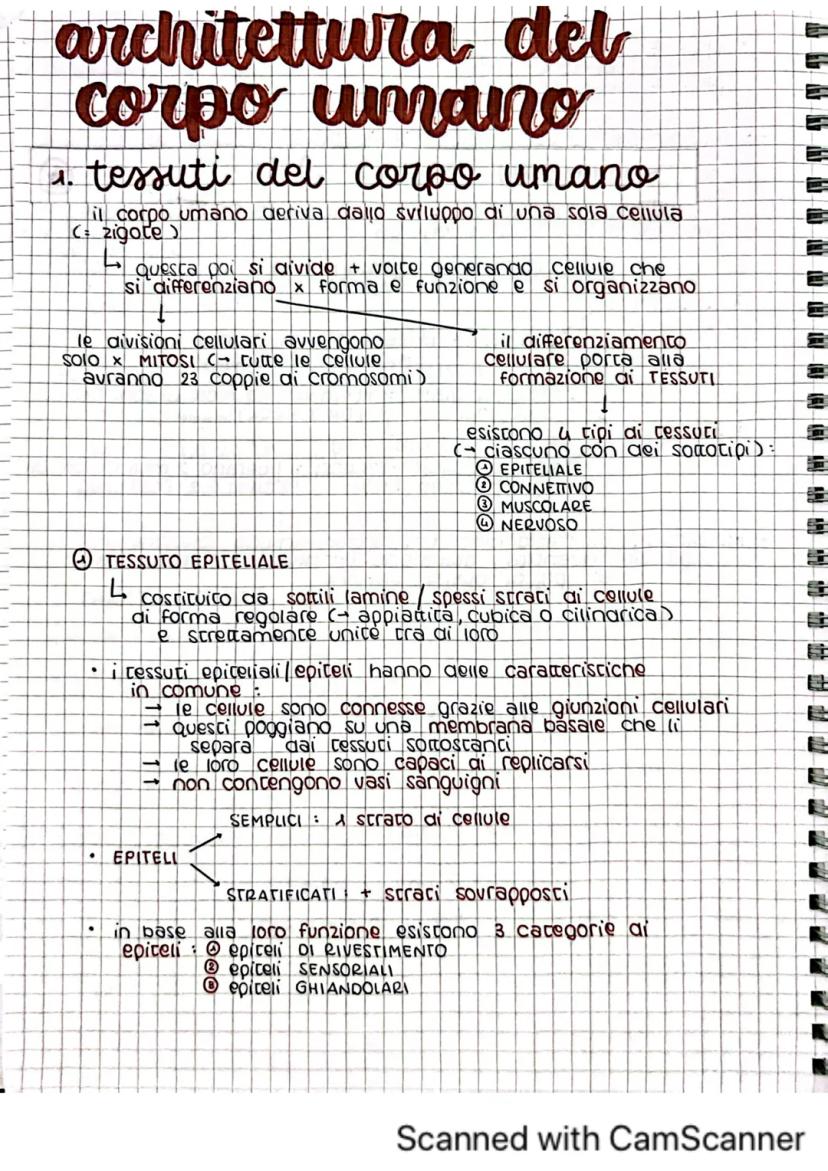 architettura del
corpo umano
1. tessuti del corpo umano
il corpo umano deriva dallo sviluppo di una sola cellula
(= zigote)
↳ questa poi si divide + volte generando cellule che
si differenziano x forma e funzione e si organizzano
le divisioni cellulari avvengono
solo x MITOSI (→ tutte le cellule
avranno 23 coppie di cromosomi)
il differenziamento
cellulare porta alla
formazione di TESSUTI
esistono 4 tipi di tessuti
(→ ciascuno con dei sottotipi):
① EPITELIALE
② CONNETTIVO
③ MUSCOLARE
④ NERVOSO
① TESSUTO EPITELIALE
↳ costituito da sottili lamine / spessi strati di cellule
di forma regolare (→ appiattita, cubica o cilindrica)
e strettamente unite tra di loro
• i tessuti epiteliali/epiteli hanno delle caratteristiche
in comune:
→ le cellule sono connesse grazie alle giunzioni cellulari
→ questi poggiano su una membrana basale che li
separa dai tessuti sottostanti
→ le loro cellule sono capaci di replicarsi
→ non contengono vasi sanguigni
SEMPLICI: 1 strato di cellule
• EPITELI
STRATIFICATI: + strati sovrapposti
• in base alla loro funzione esistono 3 categorie di
epiteli: ① epiteli DI RIVESTIMENTO
② epiteli SENSORIALI
③ epiteli GHIANDOLARI
Scanned with CamScanner